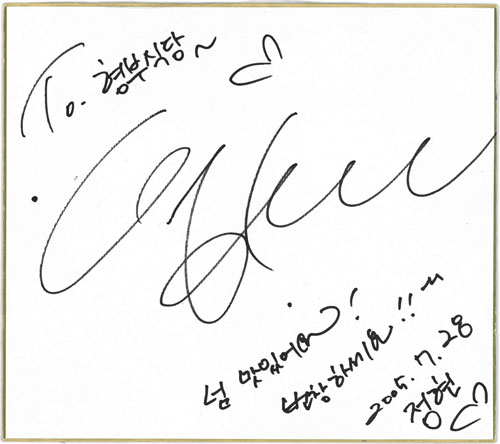 To. 형부식당~
넘 맛있어요!
번창하세요!!
2005. 7. 28
정현